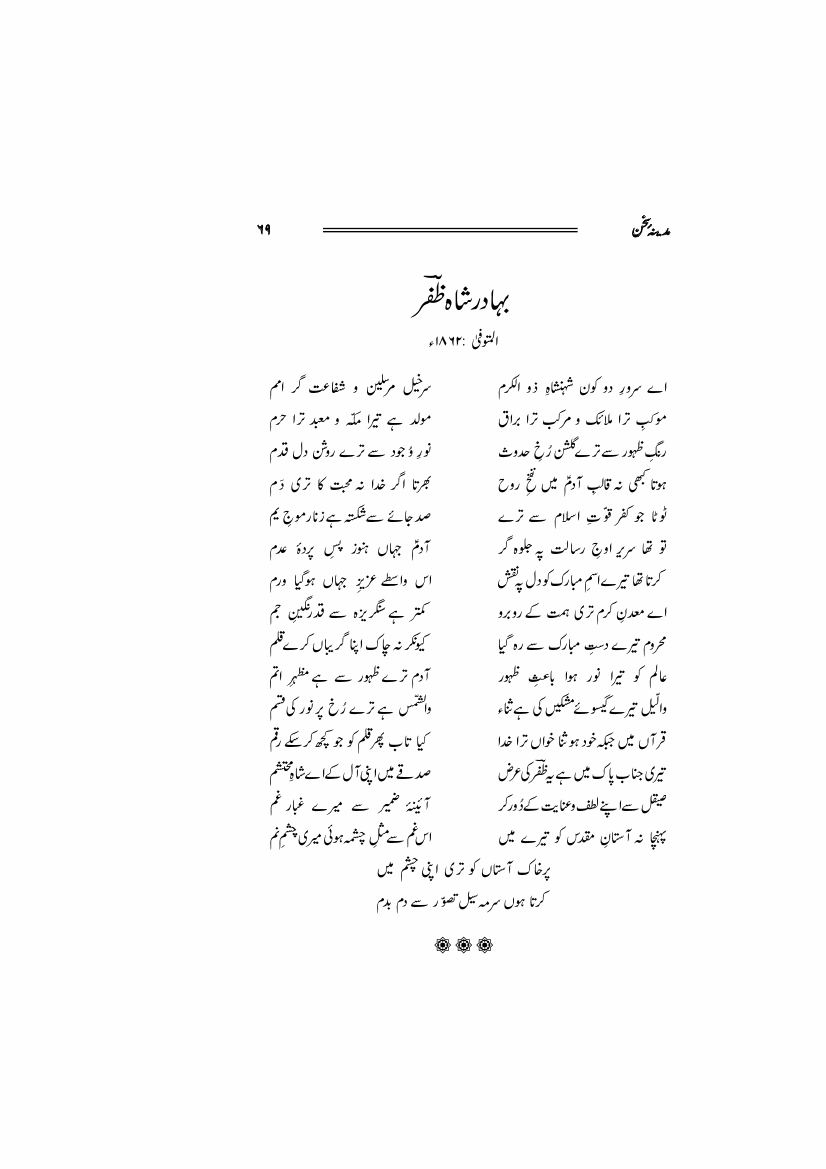 مدینۂ سخن ۶۹
بہادر شاہ ظفرؔ
المتوفیٰ :۱۸۶۲ء
اے سرورِ دو کون شہنشاہِ ذو الکرم سرخیل مرسلین و شفاعت گر امم
موکبِ ترا ملائک و مرکب ترا براق مولد ہے تیرا مکّہ و معبد ترا حرم
رنگِ ظہور سے ترے گلشن رُخِ حدوث نورِ وُجود سے ترے روشن دل قدم
ہوتا کبھی نہ قالبِ آدمؑ میں نفخِ روح بھرتا اگر خدا نہ محبت کا تری دَم
ٹوٹا جو کفر قوّتِ اسلام سے ترے صد جائے سے شکستہ ہے زنار موجِ یم
تو تھا سریرِ اوجِ رسالت پہ جلوہ گر آدمؑ جہاں ہنوز پسِ پردۂ عدم
کرتا تھا تیرے اسمِ مبارک کو دل پہ نقش اس واسطے عزیزِ جہاں ہوگیا ورم
اے معدنِ کرم تری ہمت کے روبرو کمتر ہے سنگریزہ سے قدر نگینِ جم
محروم تیرے دستِ مبارک سے رہ گیا کیونکر نہ چاک اپنا گریباں کرے قلم
عالم کو تیرا نور ہوا باعثِ ظہور آدم ترے ظہور سے ہے مظہرِ اتم
والّیل تیرے گیسوئے مشکیں کی ہے ثناء والشّمس ہے ترے رُخِ پر نور کی قسم
قرآں میں جبکہ خود ہو ثنا خواں ترا خدا کیا تاب پھر قلم کو جو کچھ کر سکے رقم
تیری جناب پاک میں ہے یہ ظفرؔ کی عرض صدقے میں اپنی آل کے اے شاہِ محتشم
صیقل سے اپنے لطف و عنایت کے دُور کر آئینۂ ضمیر سے میرے غبار غم
پہنچا نہ آستانِ مقدس کو تیرے میں اس غم سے مثلِ چشمہ ہوئی میری چشمِ نم
پر خاک آستاں کو تری اپنی چشم میں
کرتا ہوں سرمہ سیل تصوّر سے دم بدم